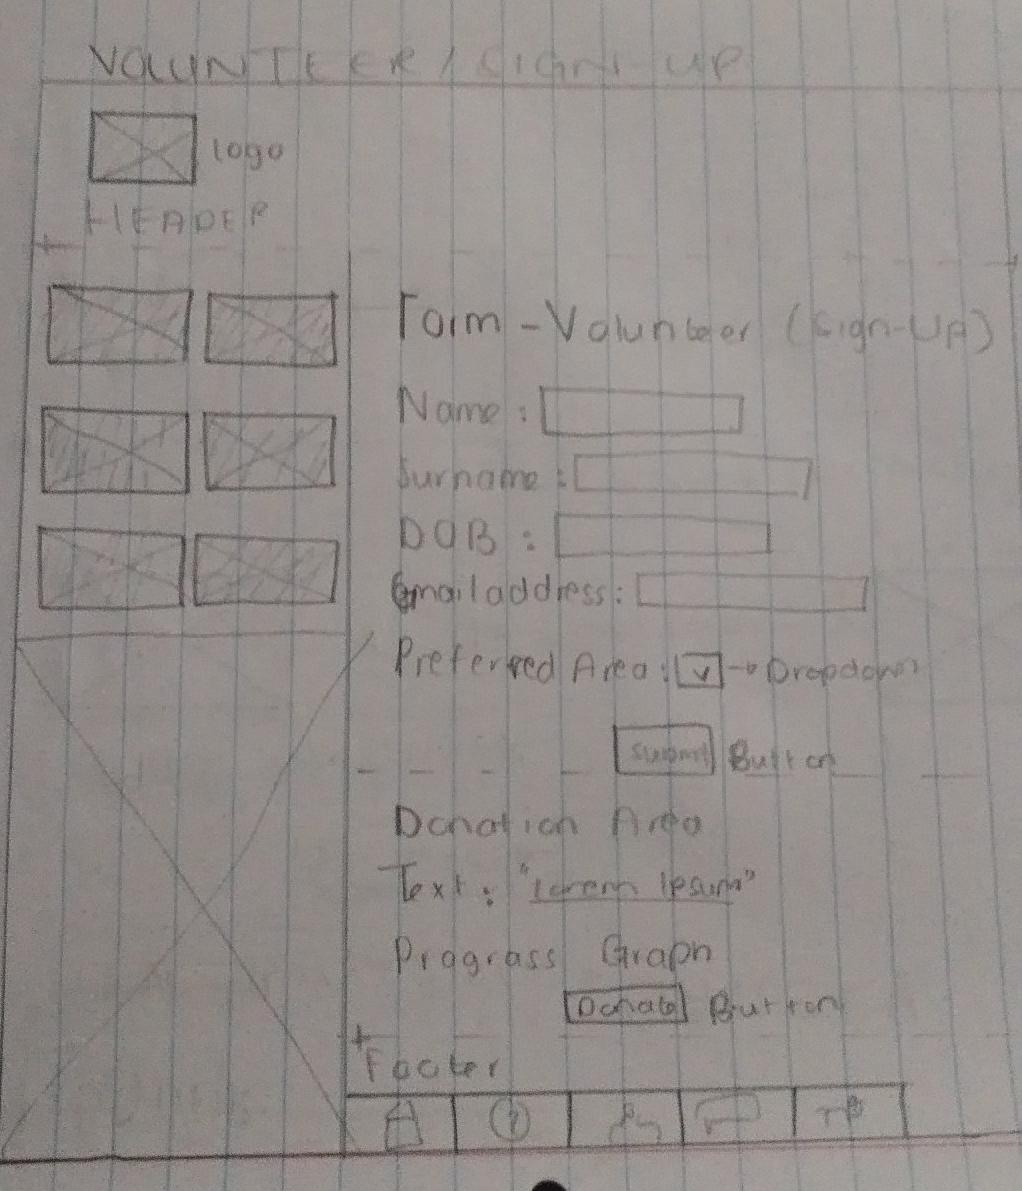 VOLUNTEER / SIGN-UP
logo
HEADER
Form - Volunteer (Sign-Up)
Name :
Surname :
DOB :
Email address :
Preferred Area : v → Dropdown
Submit Button
Donation Area
Text : "Lorem Ipsum"
Prograss Graph
Donate Button
Footer
?